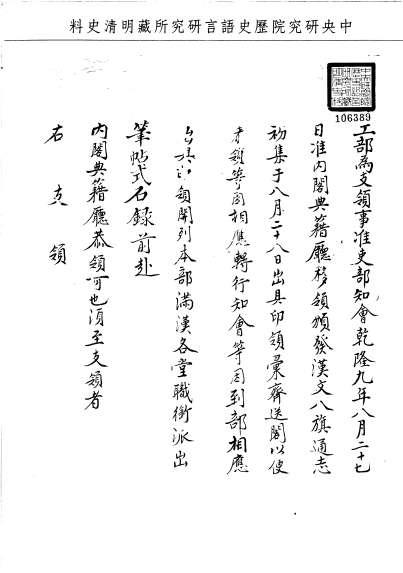 中央研究院歷史語言研究所藏明清史料
106389
工部為支領事准吏部知會乾隆九年八月二十七
日准內閣典籍廳移領頒發漢文八旗通志
初集于八月二十八日出具印領彙齊送閣以便
等因相應轉行知會等因到部相應
出印領開列本部滿漢各堂職銜派出
筆帖式石錄前赴
內閣典籍廳恭領可也須至支領者
右支領